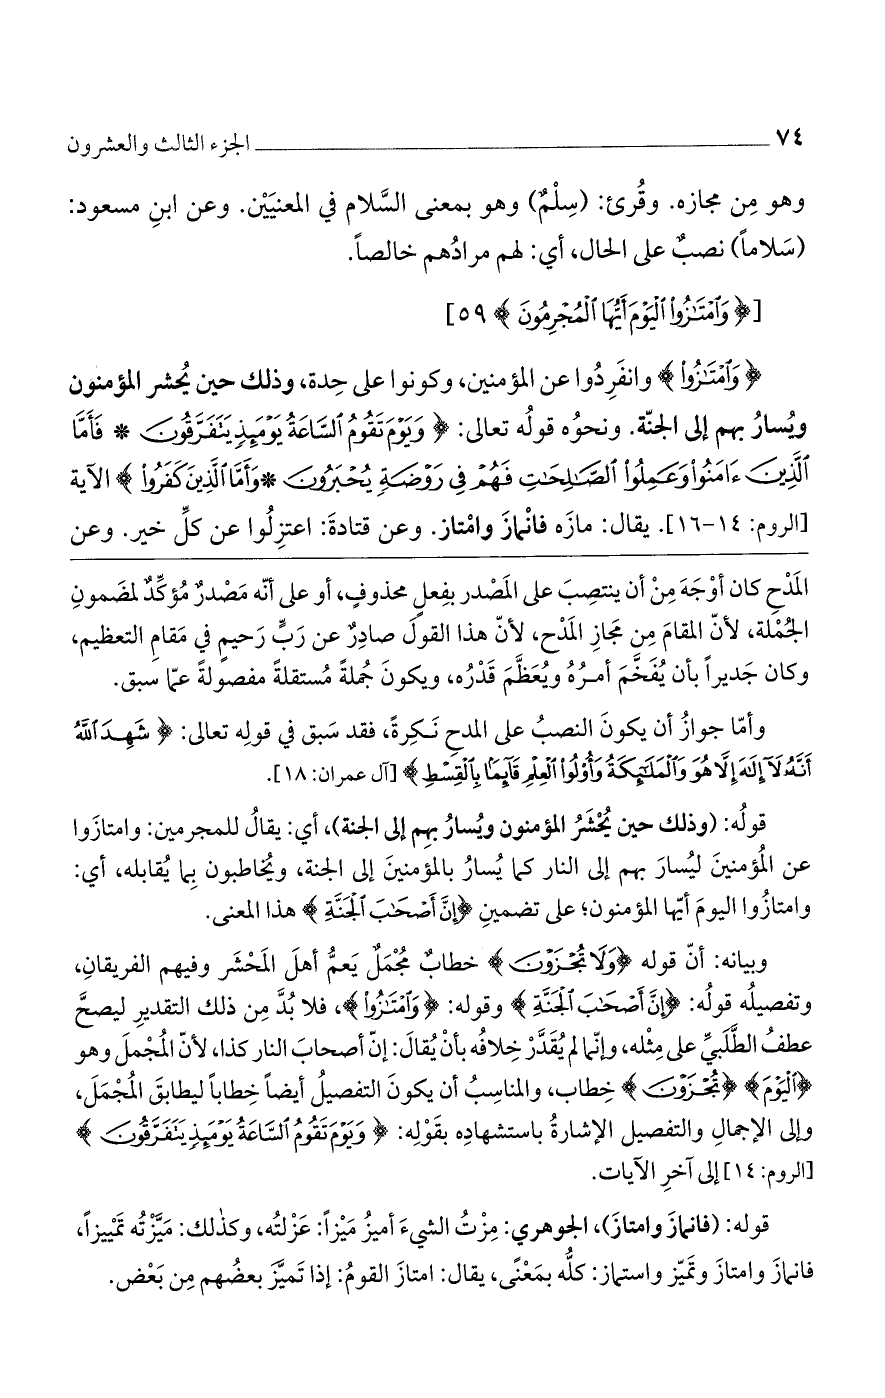 ٧٤ الجزء الثالث والعشرون
وهو مِن مجازه. وقُرئ: (سِلْمٌ) وهو بمعنى السَّلام في المعنيَيْن. وعن ابنِ مسعود:
(سَلاماً) نصبٌ على الحال، أي: لهم مرادُهم خالصاً.
[﴿وَٱمْتَـٰزُوا۟ ٱلْيَوْمَ أَيُّهَا ٱلْمُجْرِمُونَ﴾ ٥٩]
﴿وَٱمْتَـٰزُوا۟﴾ وانفَرِدُوا عن المؤمنين، وكونوا على حِدة، وذلك حين يُحشر المؤمنون
ويُسارُ بهم إلى الجنّة. ونحوُه قولُه تعالى: ﴿وَيَوْمَ تَقُومُ ٱلسَّاعَةُ يَوْمَئِذٍ يَتَفَرَّقُونَ * فَأَمَّا
ٱلَّذِينَ ءَامَنُوا۟ وَعَمِلُوا۟ ٱلصَّـٰلِحَـٰتِ فَهُمْ فِى رَوْضَةٍ يُحْبَرُونَ * وَأَمَّا ٱلَّذِينَ كَفَرُوا۟﴾ الآية
[الروم: ١٤-١٦]. يقال: مازَه فانْمازَ وامْتاز. وعن قتادةَ: اعتزِلُوا عن كلِّ خير. وعن
المَدْحِ كان أوْجَهَ مِنْ أن ينتصِبَ على المَصْدر بفِعلٍ محذوفٍ، أو على أنّه مَصْدرٌ مُؤكِّدٌ لمضمونِ
الجُمْلة، لأنّ المقامَ مِن مَجازِ المَدْح، لأنّ هذا القولَ صادِرٌ عن رَبٍّ رَحيمٍ في مَقامِ التعظيم،
وكان جَديراً بأن يُفَخَّمَ أمـرُهُ ويُعَظَّمَ قَدْرُه، ويكونَ جُملةً مُستقلةً مفصولةً عمّا سبق.
وأمّا جوازُ أن يكونَ النصبُ على المدحِ نَـكِرةً، فقد سَبق في قولِه تعالى: ﴿شَهِدَ ٱللَّهُ
أَنَّهُۥ لَآ إِلَـٰهَ إِلَّا هُوَ وَٱلْمَلَـٰٓئِكَةُ وَأُو۟لُوا۟ ٱلْعِلْمِ قَآئِمًۢا بِٱلْقِسْطِ﴾ [آل عمران: ١٨].
قولُه: (وذلك حين يُحْشَرُ المؤمنون ويُسارُ بهم إلى الجنة)، أي: يقالُ للمجرمين: وامتازَوا
عن المُؤمنينَ ليُسارَ بهم إلى النار كما يُسارُ بالمؤمنينَ إلى الجنة، ويُخاطبون بِما يُقابله، أي:
وامتازُوا اليومَ أيّها المؤمنون؛ على تضمينِ ﴿إِنَّ أَصْحَـٰبَ ٱلْجَنَّةِ﴾ هذا المعنى.
وبيانه: أنّ قوله ﴿وَلَا تُجْزَوْنَ﴾ خطابٌ مُجْمَلٌ يَعمُّ أهلَ المَحْشَر وفيهم الفريقانِ،
وتفصيلُه قولُه: ﴿إِنَّ أَصْحَـٰبَ ٱلْجَنَّةِ﴾ وقوله: ﴿وَٱمْتَـٰزُوا۟﴾، فلا بُدَّ مِن ذلك التقديرِ ليصحَّ
عطفُ الطَّلَبيِّ على مِثْله، وإنّما لم يُقَدَّرْ خِلافُه بأنْ يُقالَ: إنّ أصحابَ النار كذا، لأنّ المُجْملَ وهو
﴿ٱلْيَوْمَ﴾ ﴿تُجْزَوْنَ﴾ خِطاب، والمناسِبُ أن يكونَ التفصيلُ أيضاً خِطاباً ليطابقَ المُجْمَلَ،
وإلى الإجمالِ والتفصيل الإشارةُ باستشهادِه بقَوْلِه: ﴿وَيَوْمَ تَقُومُ ٱلسَّاعَةُ يَوْمَئِذٍ يَتَفَرَّقُونَ﴾
[الروم: ١٤] إلى آخرِ الآيات.
قوله: (فانمازَ وامتازَ)، الجوهري: مِزْتُ الشيءَ أميزُ مَيْزاً: عَزْلتُه، وكذٰلك: مَيَّزْتُه تمْييزاً،
فانمازَ وامتازَ وتَميّز واستماز: كلُّه بمَعْنًى، يقال: امتازَ القومُ: إذا تَميَّزَ بعضُهم مِن بَعْض.